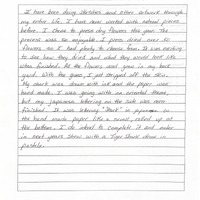 I have been doing sketches and other artwork through
my entire life. I have never worked with natural pieces
before. I chose to press dry flowers this year. The
process was so enjoyable I press dried over 50
flowers so I had plenty to choose from. It was exciting
to see how they dried and what they would look like
when finished. All the flowers used grow in my back
yard. With the grape I just stripped off the skin.
My chart was down with ink and the paper was
hand made. I was going with an oriental theme,
but my Japanese lettering on the side was never
finished. It was lettering "Mark" in Japanese on
the hand made paper like a scroll, rolled up at
the bottom. I do intend to complete it and enter
in next years show with a Tiger Skull drawn in
pastels.